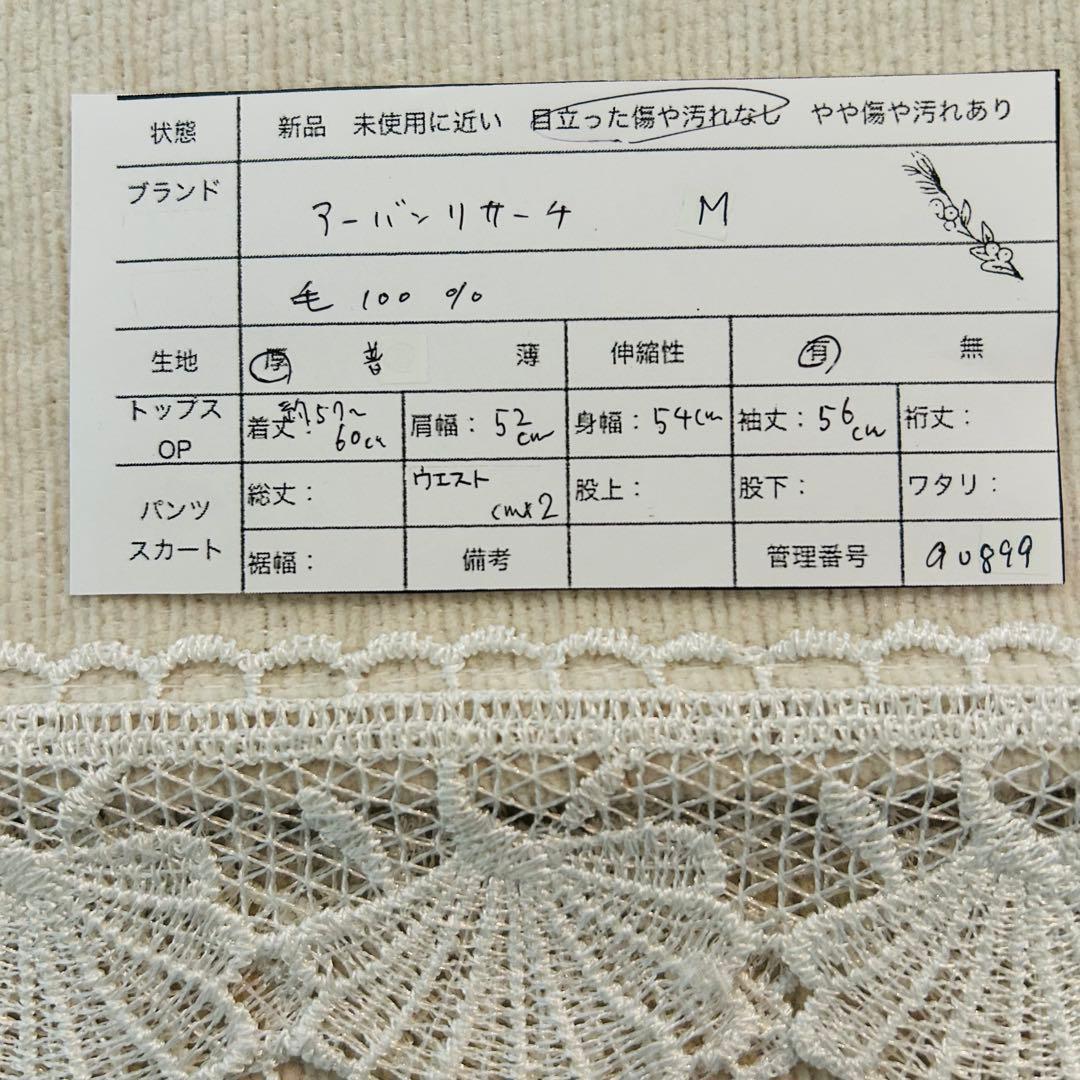 状態 新品 未使用に近い 目立った傷や汚れなし やや傷や汚れあり
ブランド アーバンリサーチ M
毛 100 %
生地 厚 普 薄 伸縮性 有 無
トップス OP 着丈: 約57~60cm 肩幅: 52cm 身幅: 54cm 袖丈: 56cm 裄丈:
パンツ スカート 総丈: ウエスト cm×2 股上: 股下: ワタリ:
裾幅: 備考 管理番号 au899